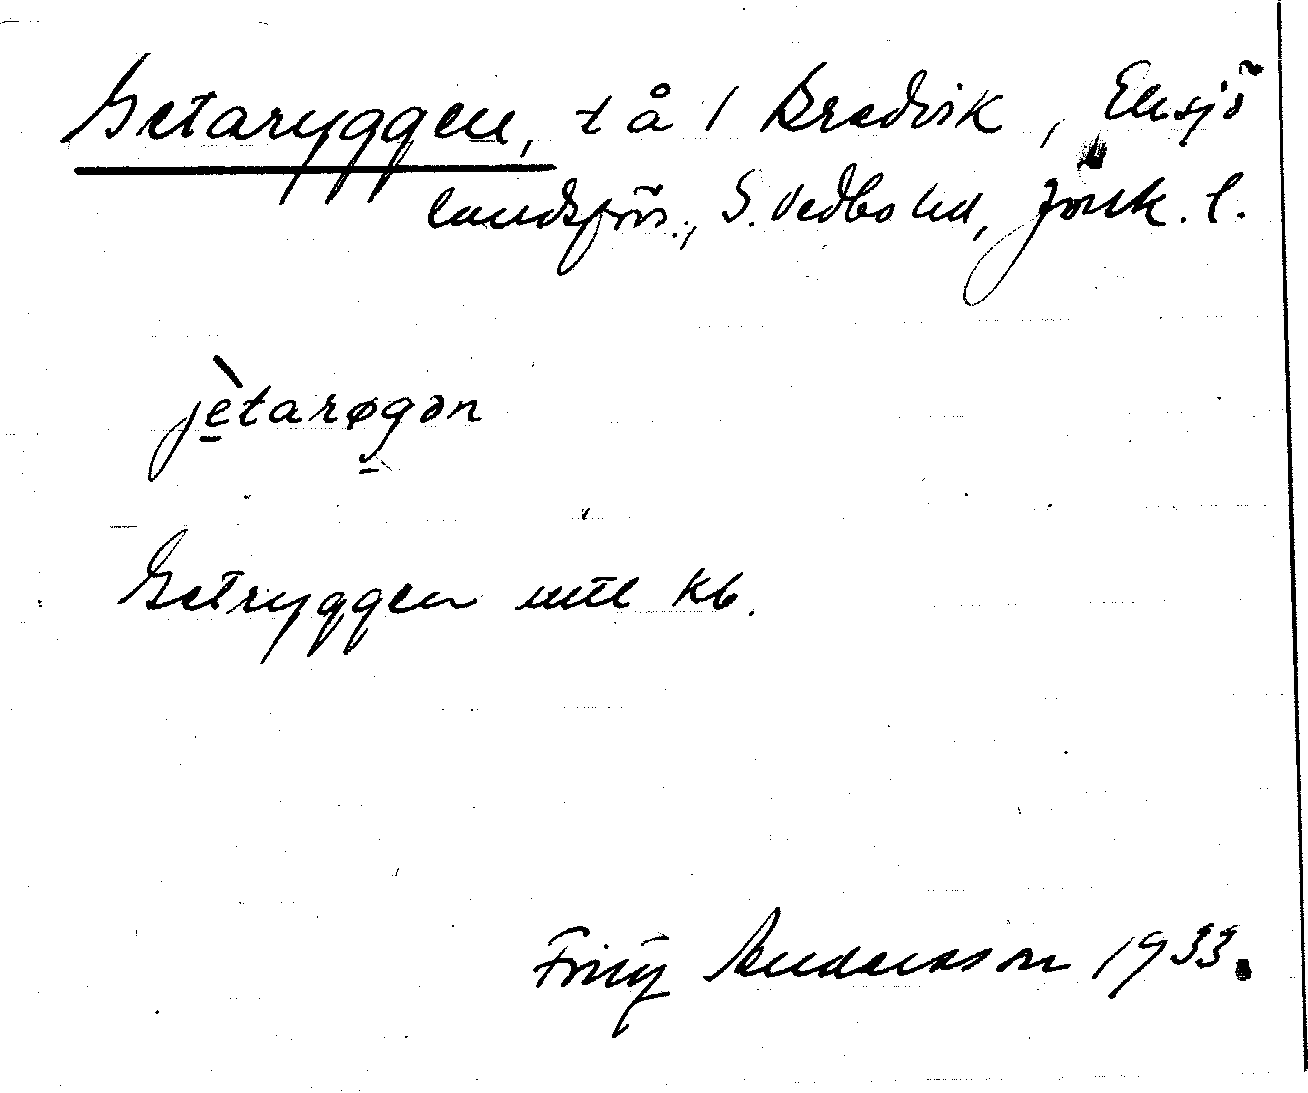 Getaryggen, t å 1 Bredvik, Eksjö
landsför., S. Vedbo hd, Jönk. l.
jètarøgən
Getryggen entl kb.
Fritz Andersson 1933.